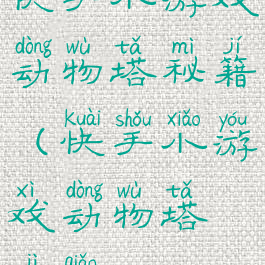 快手小游戏
dòng wù tǎ mì jí
动物塔秘籍
kuài shǒu xiǎo yóu
（快手小游
xì dòng wù tǎ
戏动物塔
jì qiǎo